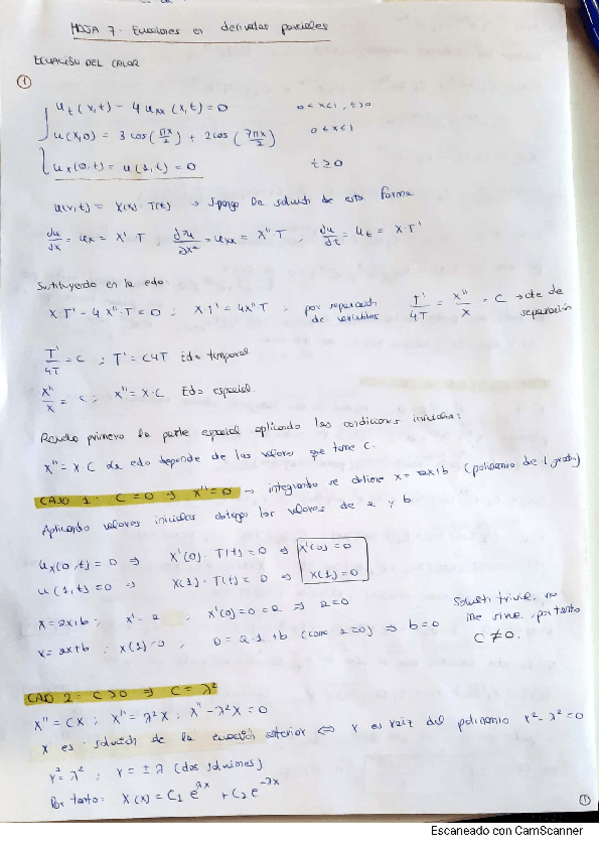 HOJA 7. Ecuaciones en derivadas parciales
ECUACIÓN DEL CALOR
①
u_t(x,t) - 4 u_xx(x,t) = 0    0<x<1, t>0
u(x,0) = 3 cos(πx/2) + 2 cos(7πx/2)    0<x<1
u_x(0,t) = u(1,t) = 0    t≥0
u(x,t) = X(x)·T(t) → Supongo la solución de esta forma
du/dx = u_x = X'·T ; d²u/dx² = u_xx = X''·T ; du/dt = u_t = X·T'
Sustituyendo en la edo:
X·T' - 4X''·T = 0 ; X·T' = 4X''T ; por separación de variables T'/4T = X''/X = C → cte de separación
T'/4T = C ; T' = C4T Edo temporal
X''/X = C ; X'' = X·C Edo espacial
Resuelvo primero la parte espacial aplicando las condiciones iniciales:
X'' = X·C la edo depende de los valores que tome C.
CASO 1: C=0 ⇒ X''=0 → integrando se obtiene X = ax+b (polinomio de 1 grado)
Aplicando valores iniciales obtengo los valores de a y b
u_x(0,t)=0 ⇒ X'(0)·T(t)=0 ⇒ X'(0)=0
u(1,t)=0 ⇒ X(1)·T(t)=0 ⇒ X(1)=0
X=ax+b ; X'=a ; X'(0)=0=a ⇒ a=0
X=ax+b ; X(1)=0 ; 0=a·1+b (como a=0) ⇒ b=0
Solución trivial, no me sirve, por tanto C≠0.
CASO 2: C>0 ⇒ C=λ²
X''=CX ; X''=λ²X ; X''-λ²X=0
X es solución de la ecuación anterior ⇔ r es raíz del polinomio r²-λ²=0
r²=λ² ; r=±λ (dos soluciones)
Por tanto: X(x)=C₁e^λx + C₂e^-λx
①
Escaneado con CamScanner